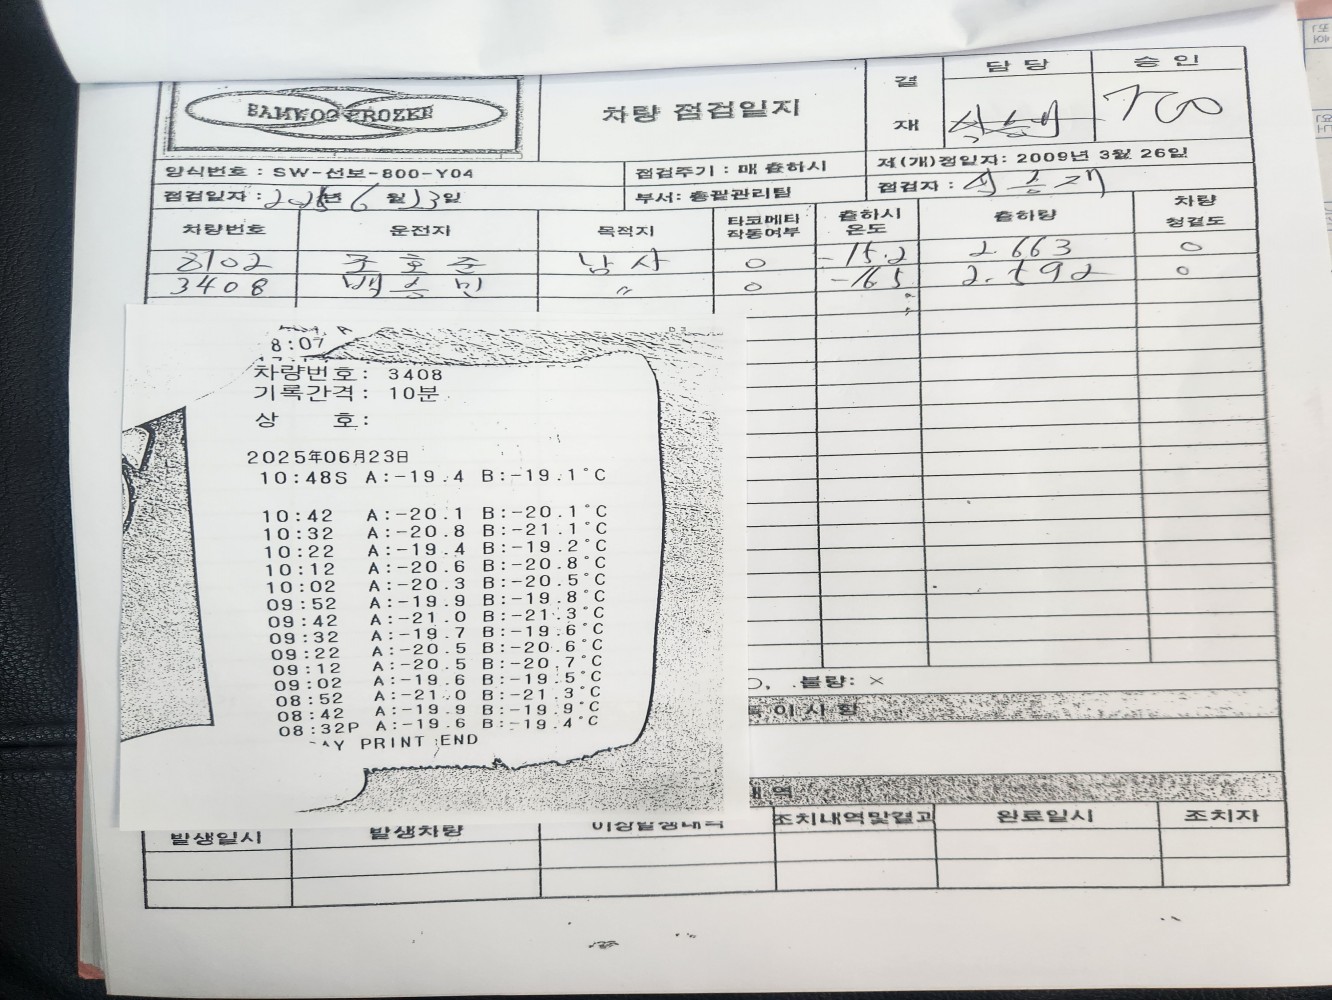 SAMWOO FROZEN
차량 점검일지
결재
담당
승인
양식번호 : SW-선보-800-Y04
점검주기 : 매 출하시
제(개)정일자: 2009년 3월 26일
점검일자 : 2025년 6월 23일
부서: 총괄관리팀
점검자 :
차량번호 운전자 목적지 타코메타 작동여부 출하시 온도 출하량 차량 청결도
8102 조호준 남사 ○ -15.2 2.663 ○
3408 백승민 〃 ○ -16.5 2.592 ○
8:07
차량번호: 3408
기록간격: 10분
상 호:
2025年06月23日
10:48S A:-19.4 B:-19.1°C
10:42 A:-20.1 B:-20.1°C
10:32 A:-20.8 B:-21.1°C
10:22 A:-19.4 B:-19.2°C
10:12 A:-20.6 B:-20.8°C
10:02 A:-20.3 B:-20.5°C
09:52 A:-19.9 B:-19.8°C
09:42 A:-21.0 B:-21.3°C
09:32 A:-19.7 B:-19.6°C
09:22 A:-20.5 B:-20.6°C
09:12 A:-20.5 B:-20.7°C
09:02 A:-19.6 B:-19.5°C
08:52 A:-21.0 B:-21.3°C
08:42 A:-19.9 B:-19.9°C
08:32P A:-19.6 B:-19.4°C
AY PRINT END
불량: ×
특이사항
내역
발생일시 발생차량 이상발생내역 조치내역및결과 완료일시 조치자